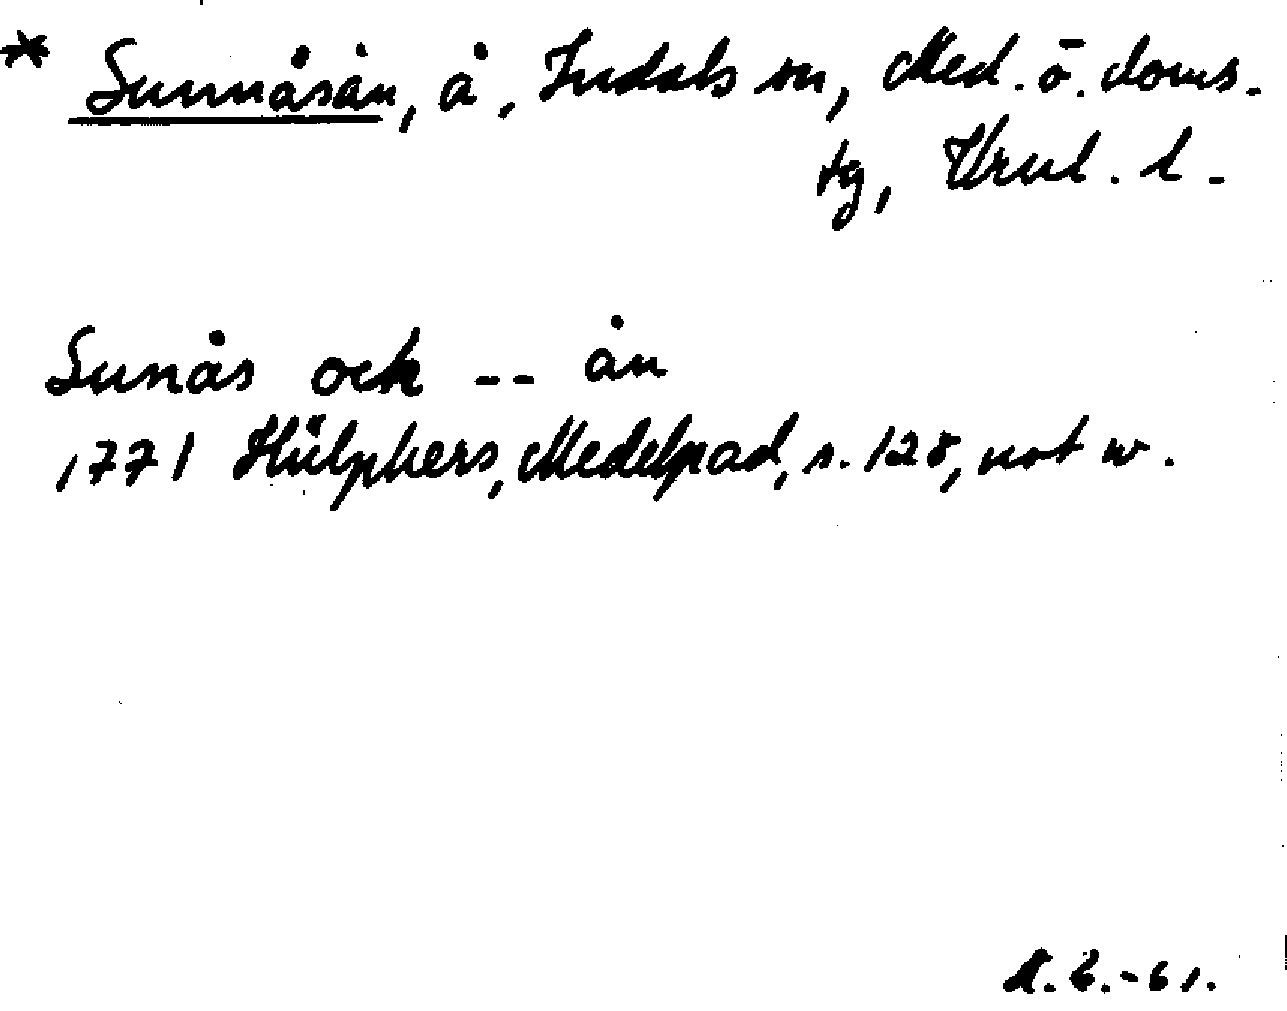 * Sunnåsån, å, Indals sn, Med. ö. doms-
tg, Vrnl. l.
Sunås och -- ån
1771 Hülphers, Medelpad, s. 128, not w.
A.E.-61.